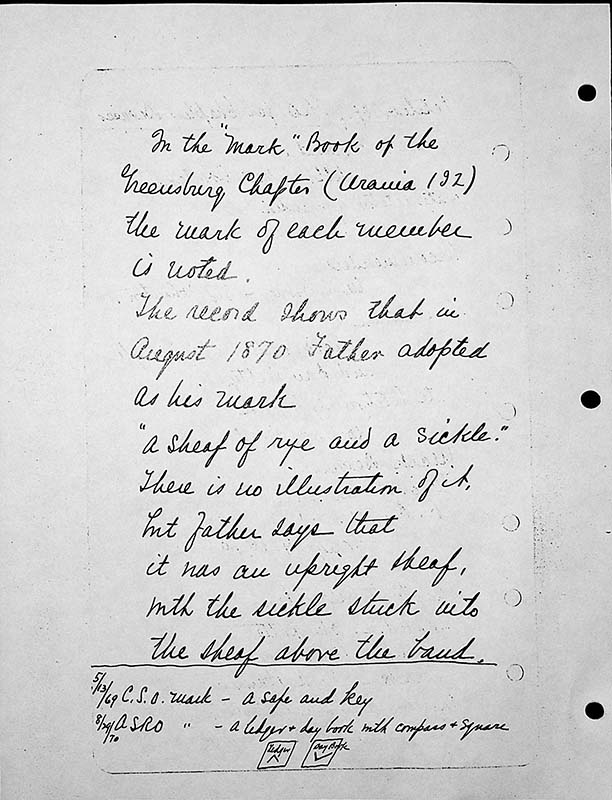 In the "Mark" Book of the
Greensburg Chapter (Urania 192)
the mark of each member
is noted.
The record shows that in
August 1870 Father adopted
as his mark
"a sheaf of rye and a sickle."
There is no illustration of it,
but Father says that
it was an upright sheaf,
with the sickle stuck into
the sheaf above the band.
5/13/69 C.S.O. mark - a safe and key
8/29/70 ASRO " - a ledger + day book with compass + square
Ledger Day Book